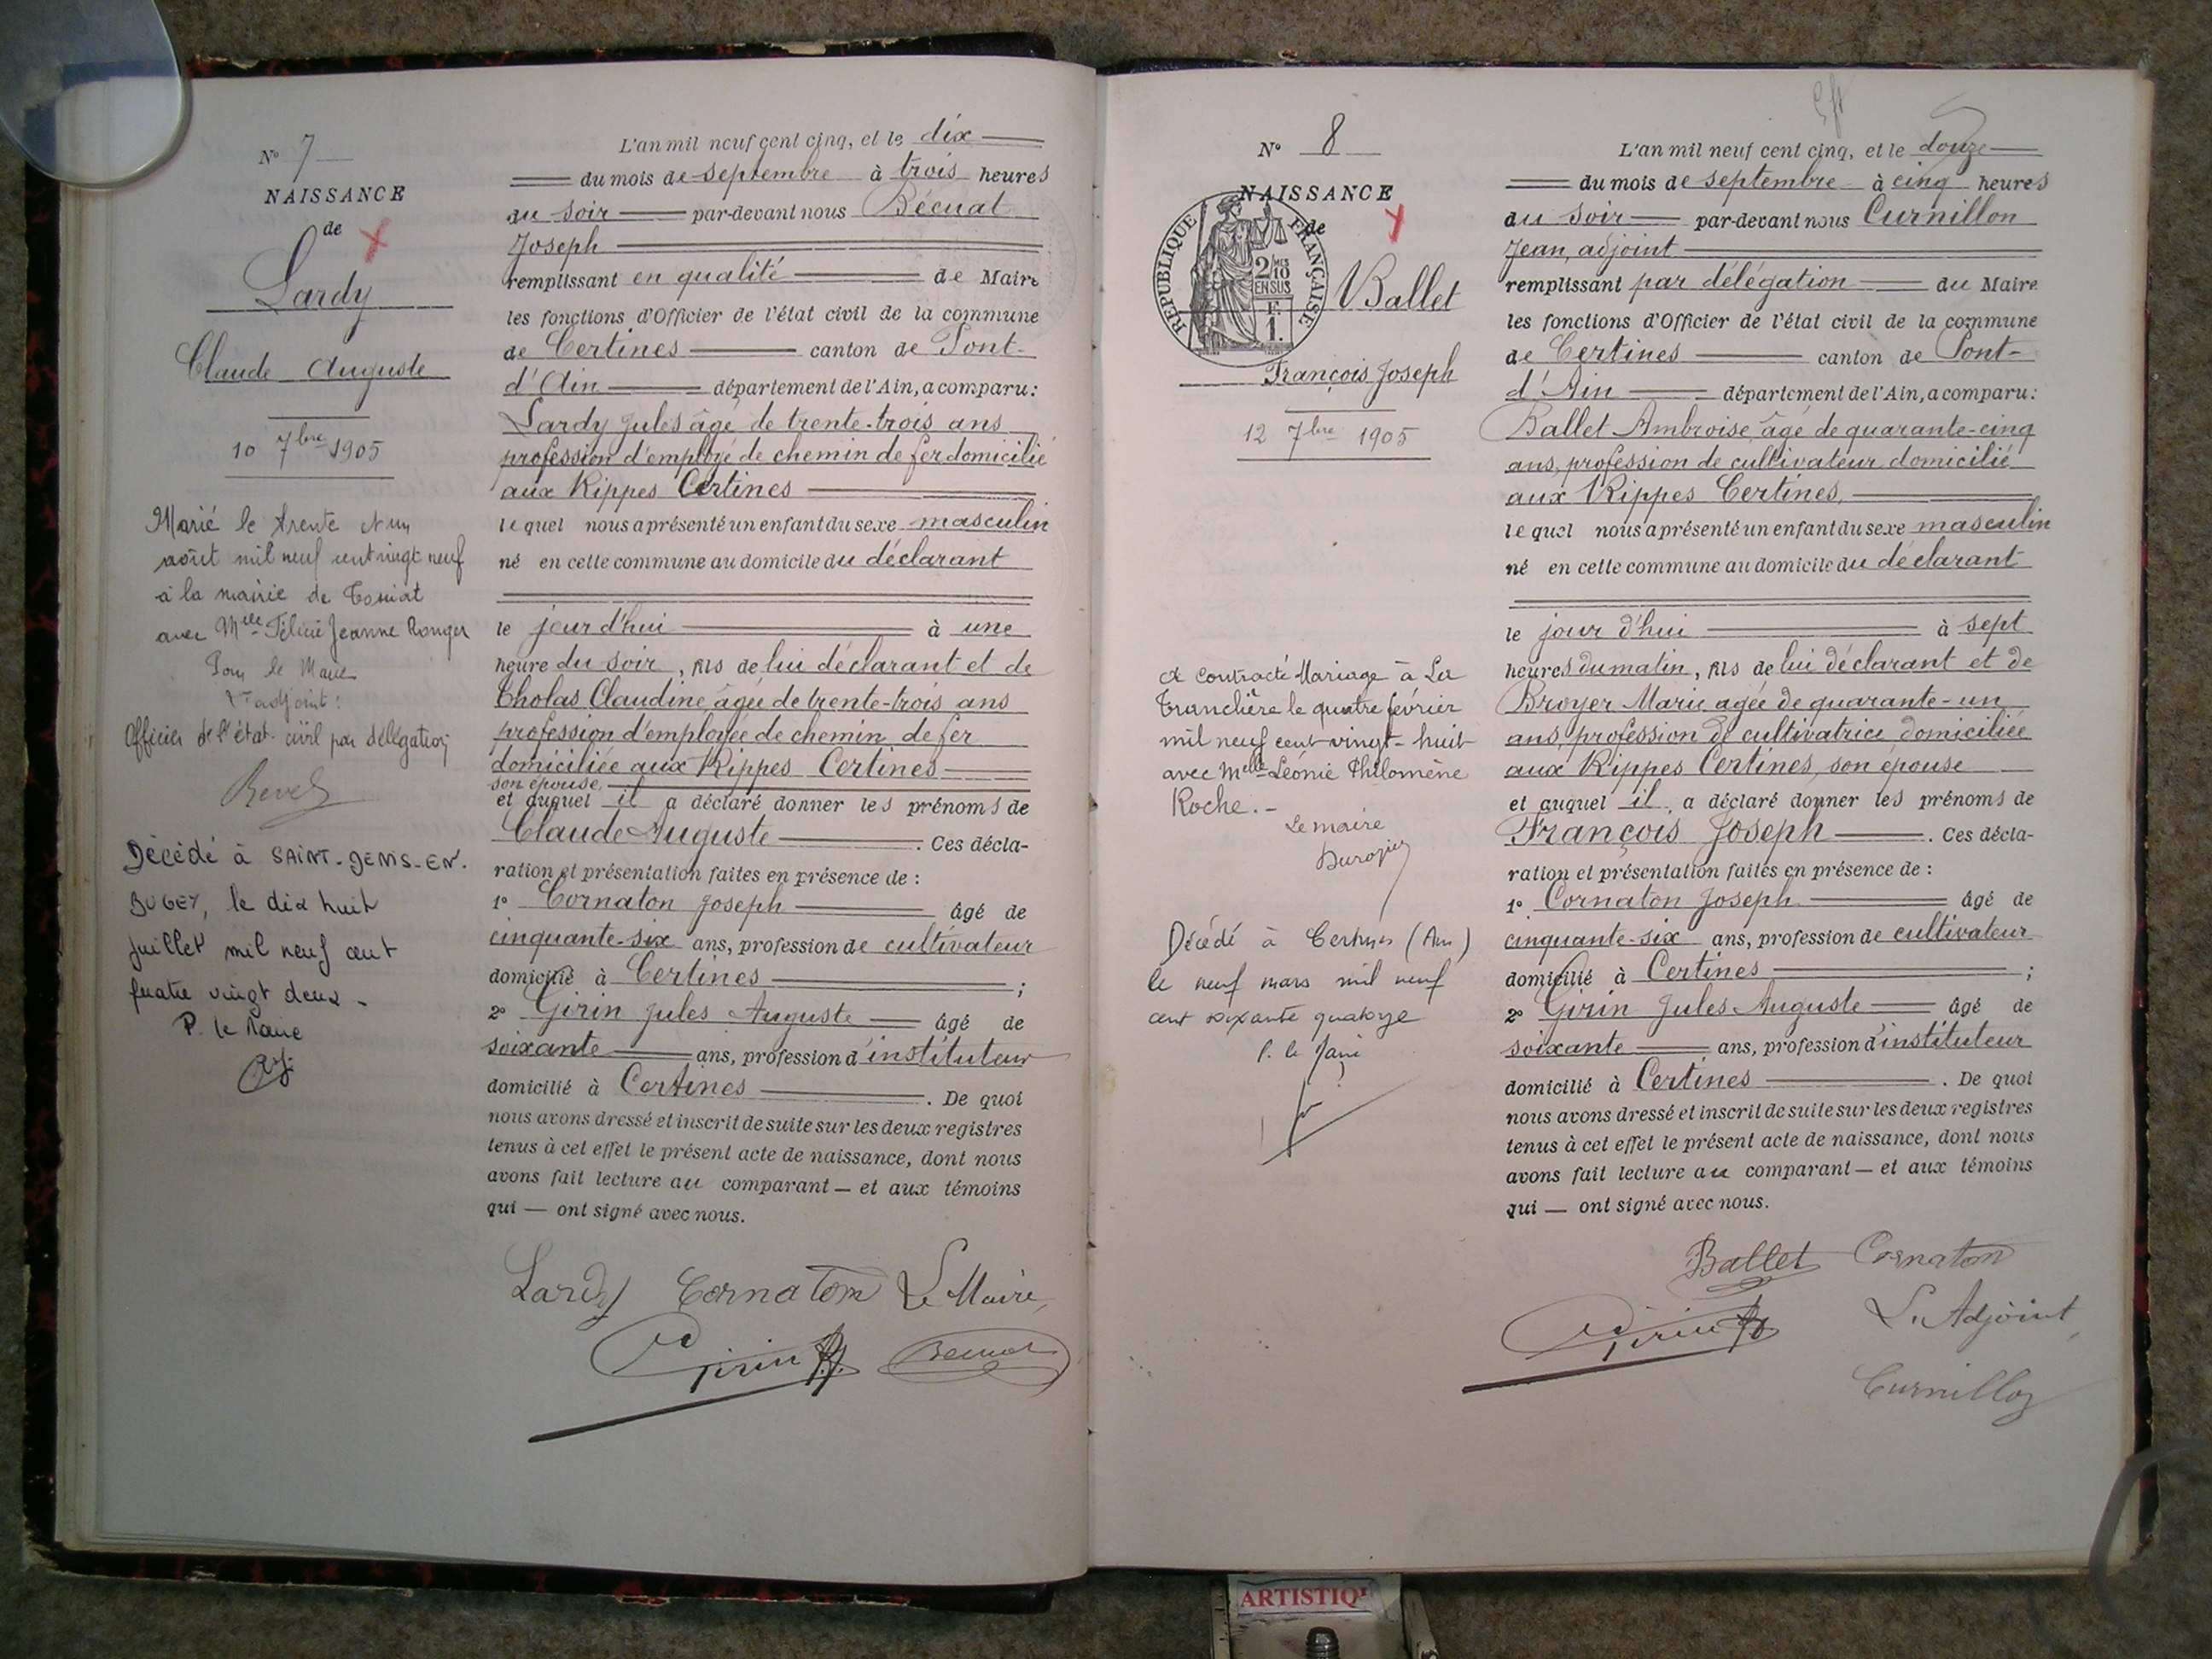 N° 7
NAISSANCE
de
Lardy
Claude Auguste
10 7bre 1905
Marié le trente et un
août mil neuf cent vingt neuf
à la mairie de Tossiat
avec Mlle Félicie Jeanne Ronger
Pour le Maire
l'adjoint :
Officier de l'état civil par délégation
Revel
Décédé à SAINT-DENIS-EN-
BUGEY, le dix huit
juillet mil neuf cent
quatre vingt deux -
P. le Maire
L'an mil neuf cent cinq, et le dix
du mois de septembre à trois heures
du soir par-devant nous Bécuat
Joseph
remplissant en qualité de Maire
les fonctions d'Officier de l'état civil de la commune
de Certines canton de Pont-
d'Ain département de l'Ain, a comparu :
Lardy Jules âgé de trente-trois ans
profession d'employé de chemin de fer domicilié
aux Rippes Certines
lequel nous a présenté un enfant du sexe masculin
né en cette commune au domicile du déclarant
le jour d'hui à une
heure du soir, fils de lui déclarant et de
Tholas Claudine âgée de trente-trois ans
profession d'employée de chemin de fer
domiciliée aux Rippes Certines
son épouse,
et auquel il a déclaré donner les prénoms de
Claude Auguste . Ces décla-
ration et présentation faites en présence de :
1° Cornaton Joseph âgé de
cinquante-six ans, profession de cultivateur
domicilié à Certines ;
2° Girin Jules Auguste âgé de
soixante ans, profession d'instituteur
domicilié à Certines . De quoi
nous avons dressé et inscrit de suite sur les deux registres
tenus à cet effet le présent acte de naissance, dont nous
avons fait lecture au comparant — et aux témoins
qui — ont signé avec nous.
Lardy Cornaton Le Maire,
Girin Bécuat
N° 8
NAISSANCE
de
REPUBLIQUE FRANÇAISE
2/10 MES
EN SUS
F.
1.
Ballet
François Joseph
12 7bre 1905
a contracté Mariage à La
Tranclière le quatre février
mil neuf cent vingt-huit
avec Melle Léonie Philomène
Roche. -
Le maire
Décédé à Certines (Ain)
le neuf mars mil neuf
cent soixante quatorze
P. le Maire
L'an mil neuf cent cinq, et le douze
du mois de septembre à cinq heures
du soir par-devant nous Curnillon
Jean, adjoint
remplissant par délégation du Maire
les fonctions d'Officier de l'état civil de la commune
de Certines canton de Pont-
d'Ain département de l'Ain, a comparu :
Ballet Ambroise, âgé de quarante-cinq
ans, profession de cultivateur domicilié
aux Rippes Certines,
lequel nous a présenté un enfant du sexe masculin
né en cette commune au domicile du déclarant
le jour d'hui à sept
heures du matin, fils de lui déclarant et de
Broyer Marie agée de quarante-un
ans, profession de cultivatrice domiciliée
aux Rippes Certines, son épouse
et auquel il a déclaré donner les prénoms de
François Joseph . Ces décla-
ration et présentation faites en présence de :
1° Cornaton Joseph âgé de
cinquante-six ans, profession de cultivateur
domicilié à Certines ;
2° Girin Jules Auguste âgé de
soixante ans, profession d'instituteur
domicilié à Certines . De quoi
nous avons dressé et inscrit de suite sur les deux registres
tenus à cet effet le présent acte de naissance, dont nous
avons fait lecture au comparant — et aux témoins
qui — ont signé avec nous.
Ballet Cornaton
Girin L'Adjoint,
Curnillon
ARTISTIQ